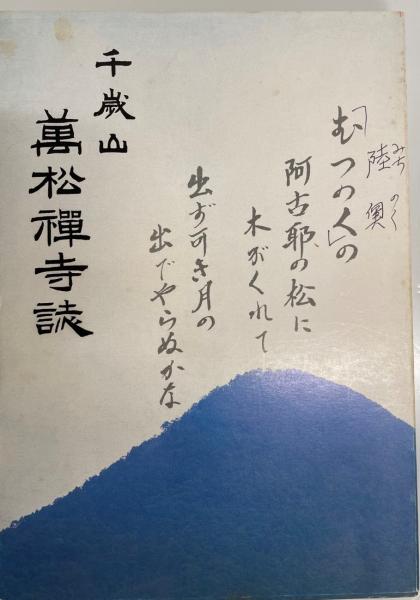 みちのく
陸奥
むつのくの
阿古耶の松に
木がくれて
出づ可き月の
出でやらぬかな
千歳山
萬松禪寺誌